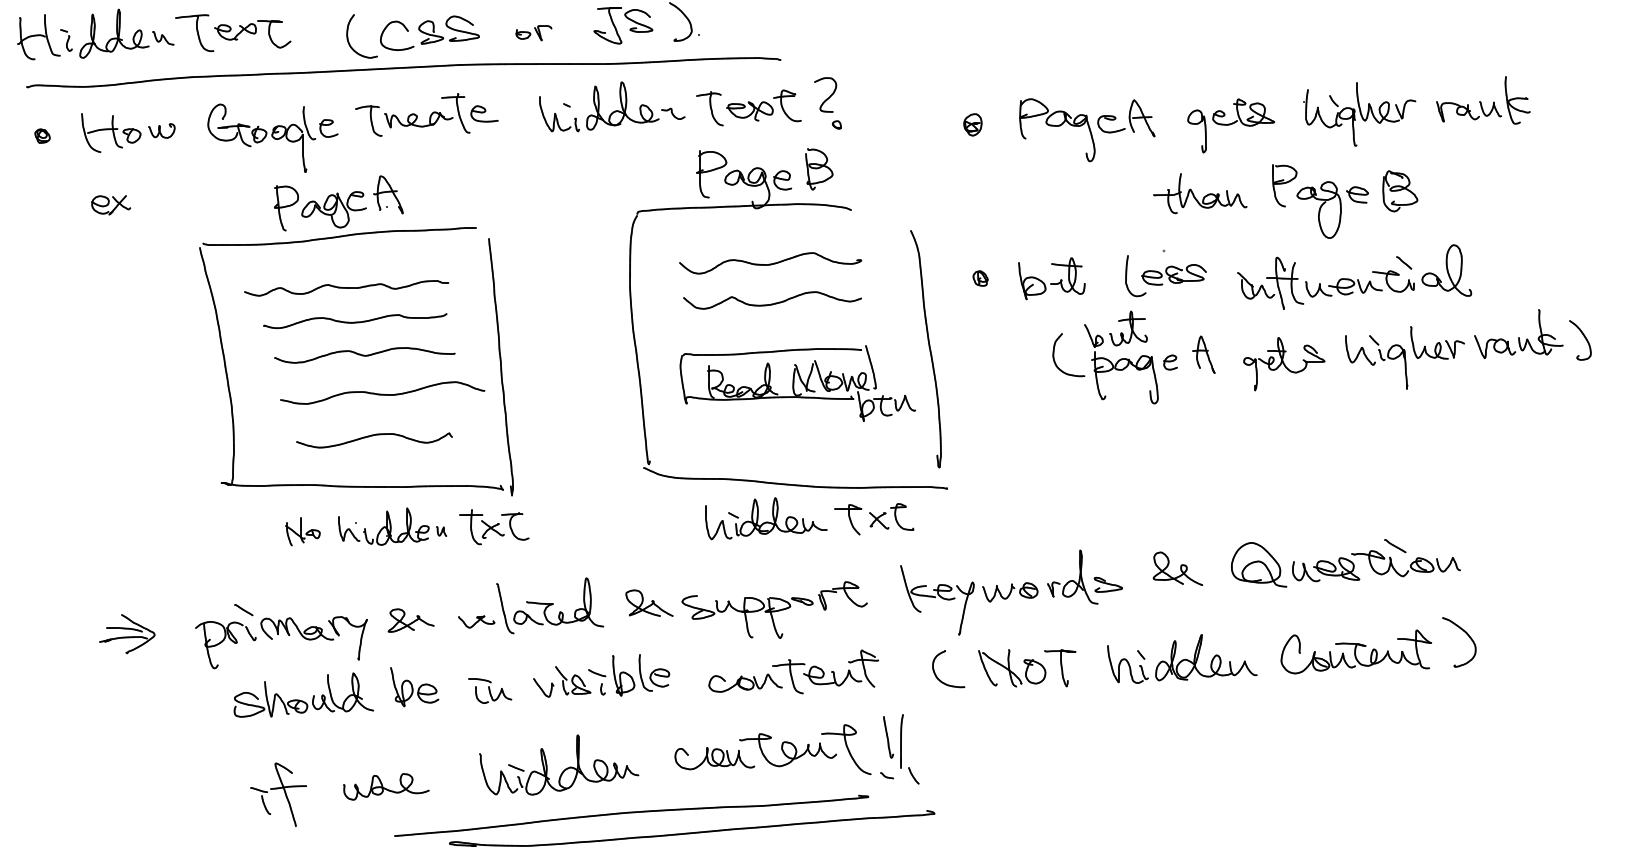 Hidden Text (CSS or JS).
• How Google Treate hidden text?
ex
Page A
No hidden txt
Page B
Read More
btn
hidden txt
• Page A gets higher rank
than Page B
• but less influential
(but page A gets higher rank)
⇒ primary & related & support keywords & Question
should be in visible content (NOT hidden Content)
if use hidden content!!